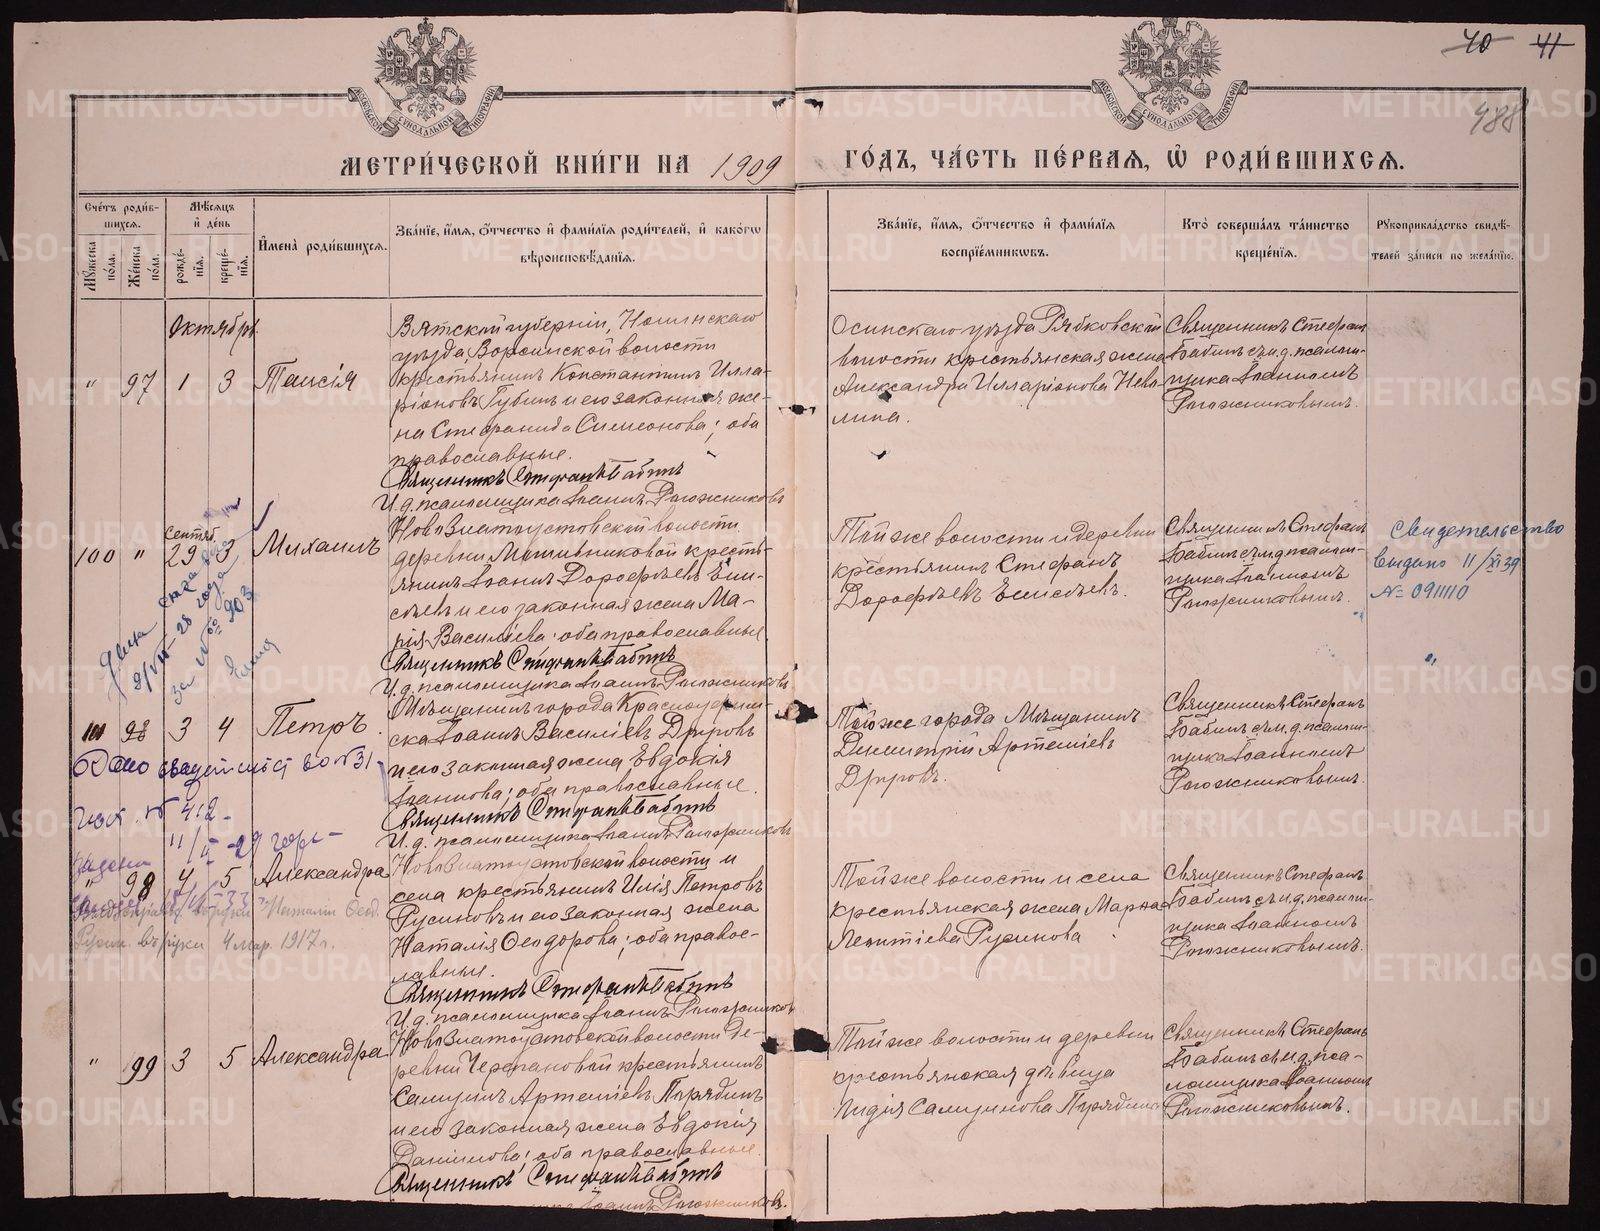 40 41
488
МЕТРИ́ЧЕСКОЙ КНИ́ГИ НА 1909 ГО́ДЪ, ЧА́СТЬ ПЕ́РВАЯ, Ѡ҆ РОДИ́ВШИХСЯ.
Сче́тъ роди́в-
шихся.
Мꙋ́жеска
по́ла.
Же́нска
по́ла.
Мѣ́сяцъ
и҆ де́нь
рожде́-
нїя.
креще́-
нїя.
И҆мена̀ роди́вшихся.
Зва́нїе, и҆́мя, ѻ҆́тчество и҆ фами́лїя роди́телей, и҆ како́гѡ
вѣроисповѣ́данїя.
Зва́нїе, и҆́мя, ѻ҆́тчество и҆ фами́лїя
воспрїе́мникѡвъ.
Кто̀ соверша́лъ та́инство
креще́нїя.
Рꙋкоприкла́дство свидѣ́-
телей за́писи по жела́нїю.
Октябрь
" 97 1 3 Таисія
Вятской губерніи, Нолинскаго
уѣзда, Ворсинской волости
крестьянинъ Константинъ Илла-
ріоновъ Губинъ и его законная же-
на Стефанида Симеонова; оба
православные.
Священникъ Стефанъ Бабинъ
И.д. псаломщика Іоаннъ Рогожниковъ
Осинскаго уѣзда Рябковской
волости крестьянская жена
Александра Илларіонова Нево-
лина.
Священникъ Стефанъ
Бабинъ съ и.д. псалом-
щика Іоанномъ
Рогожниковымъ.
Сентяб.
100 " 29 3 Михаилъ
Ново Златоустовской волости
деревни Мишивниковой кресть-
янинъ Іоаннъ Дорофѣевъ Ели-
сѣевъ и его законная жена Ма-
рія Василіева; оба православные.
Священникъ Стефанъ Бабинъ
И.д. псаломщика Іоаннъ Рогожниковъ
Той же волости и деревни
крестьянинъ Стефанъ
Дорофѣевъ Елисѣевъ.
Священникъ Стефанъ
Бабинъ съ и.д. псалом-
щика Іоанномъ
Рогожниковымъ.
Свидетельство
выдано 11/XI 39
№ 091110
28 года
за № 903
101 98 3 4 Петръ.
Мѣщанинъ города Красноуфим-
ска Іоаннъ Василіевъ Дыровъ
и его законная жена Евдокія
Іоаннова; оба православные.
Священникъ Стефанъ Бабинъ
И.д. псаломщика Іоаннъ Рогожниковъ
Того же города Мѣщанинъ
Димитрій Артеміевъ
Дыровъ.
Священникъ Стефанъ
Бабинъ съ и.д. псалом-
щика Іоанномъ
Рогожниковымъ.
№ 412
11/II - 29 года
" 98 4 5 Александра
Ново Златоустовской волости и
села крестьянинъ Илія Петровъ
Русиновъ и его законная жена
Наталія Ѳеодорова; оба правос-
лавные.
Священникъ Стефанъ Бабинъ
И.д. псаломщика Іоаннъ Рогожниковъ
Той же волости и села
крестьянская жена Марѳа
Леонтіева Русинова
Священникъ Стефанъ
Бабинъ съ и.д. псалом-
щика Іоанномъ
Рогожниковымъ.
Наталіи Ѳеод.
4 мар. 1917 г.
" 99 3 5 Александра
Ново Златоустовской волости де-
ревни Черепановой крестьянинъ
Самуилъ Артеміевъ Порядинъ
и его законная жена Евдокія
Даніилова; оба православные.
Священникъ Стефанъ Бабинъ
Іоаннъ Рогожниковъ.
Той же волости и деревни
крестьянская дѣвица
Лидія Самуилова Порядина
Священникъ Стефанъ
Бабинъ съ и.д. пса-
ломщика Іоанномъ
Рогожниковымъ.